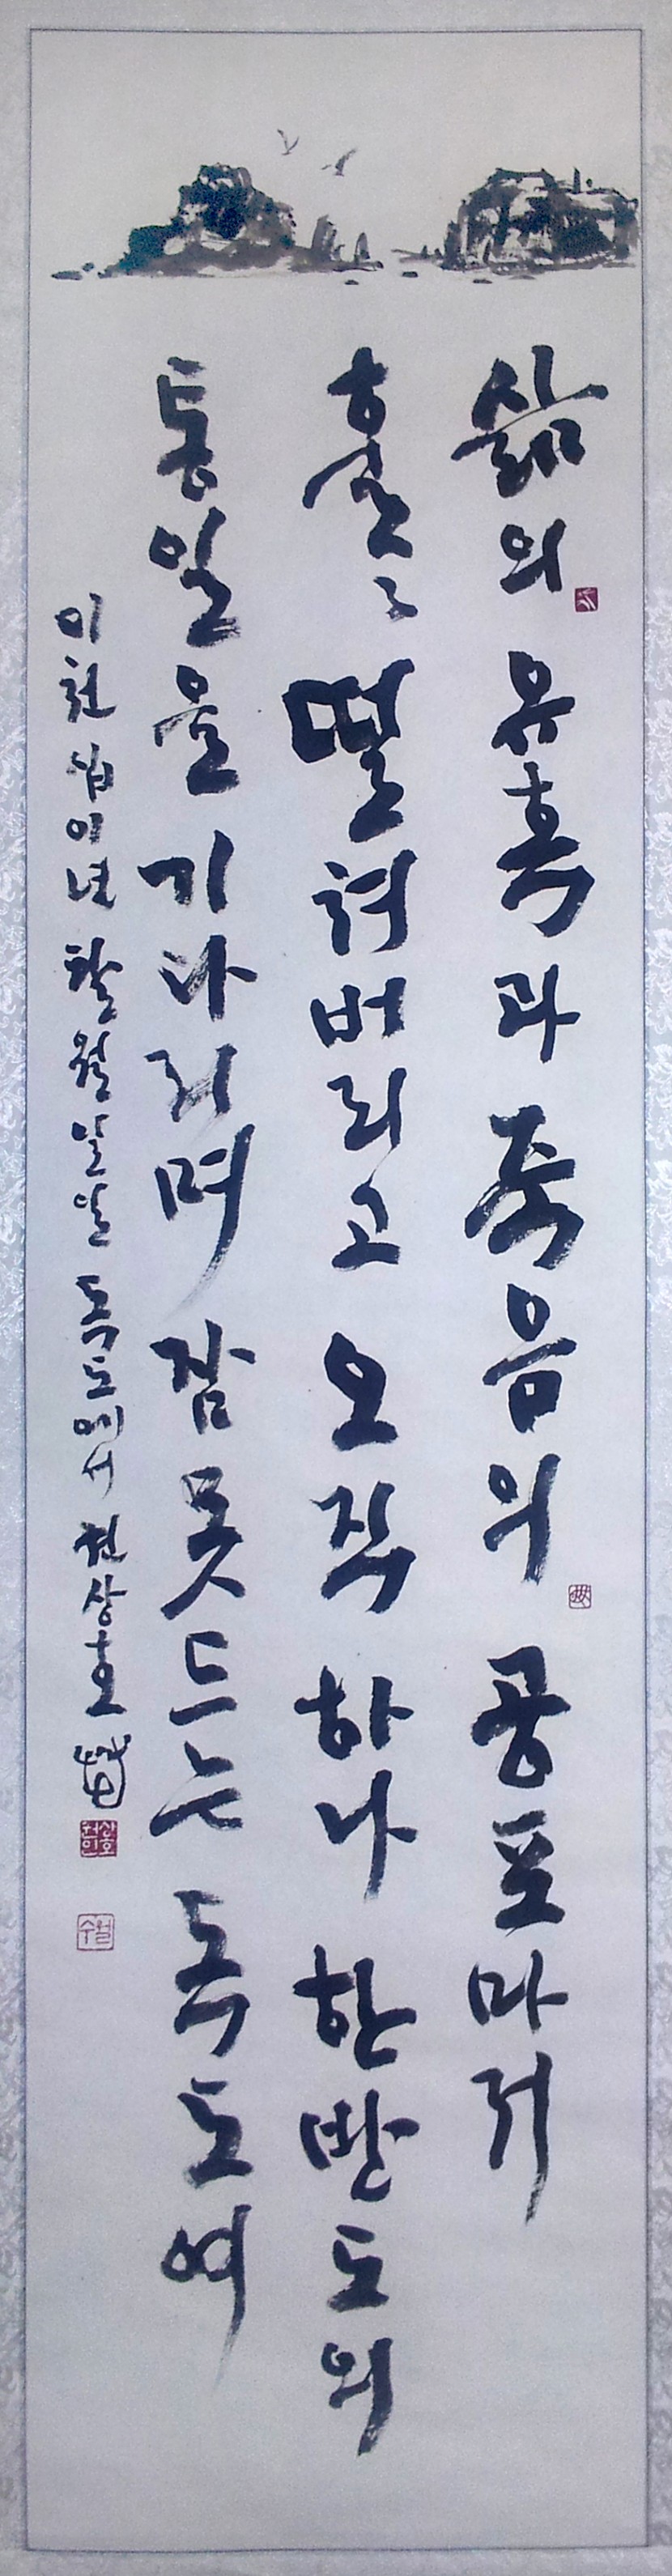 삶의 유혹과 죽음의 공포마저
훌〻 떨쳐버리고 오직 하나 한반도의
통일을 기다리며 잠 못 드는 독도여
이천십이년 팔월 일일 독도에서 천상호